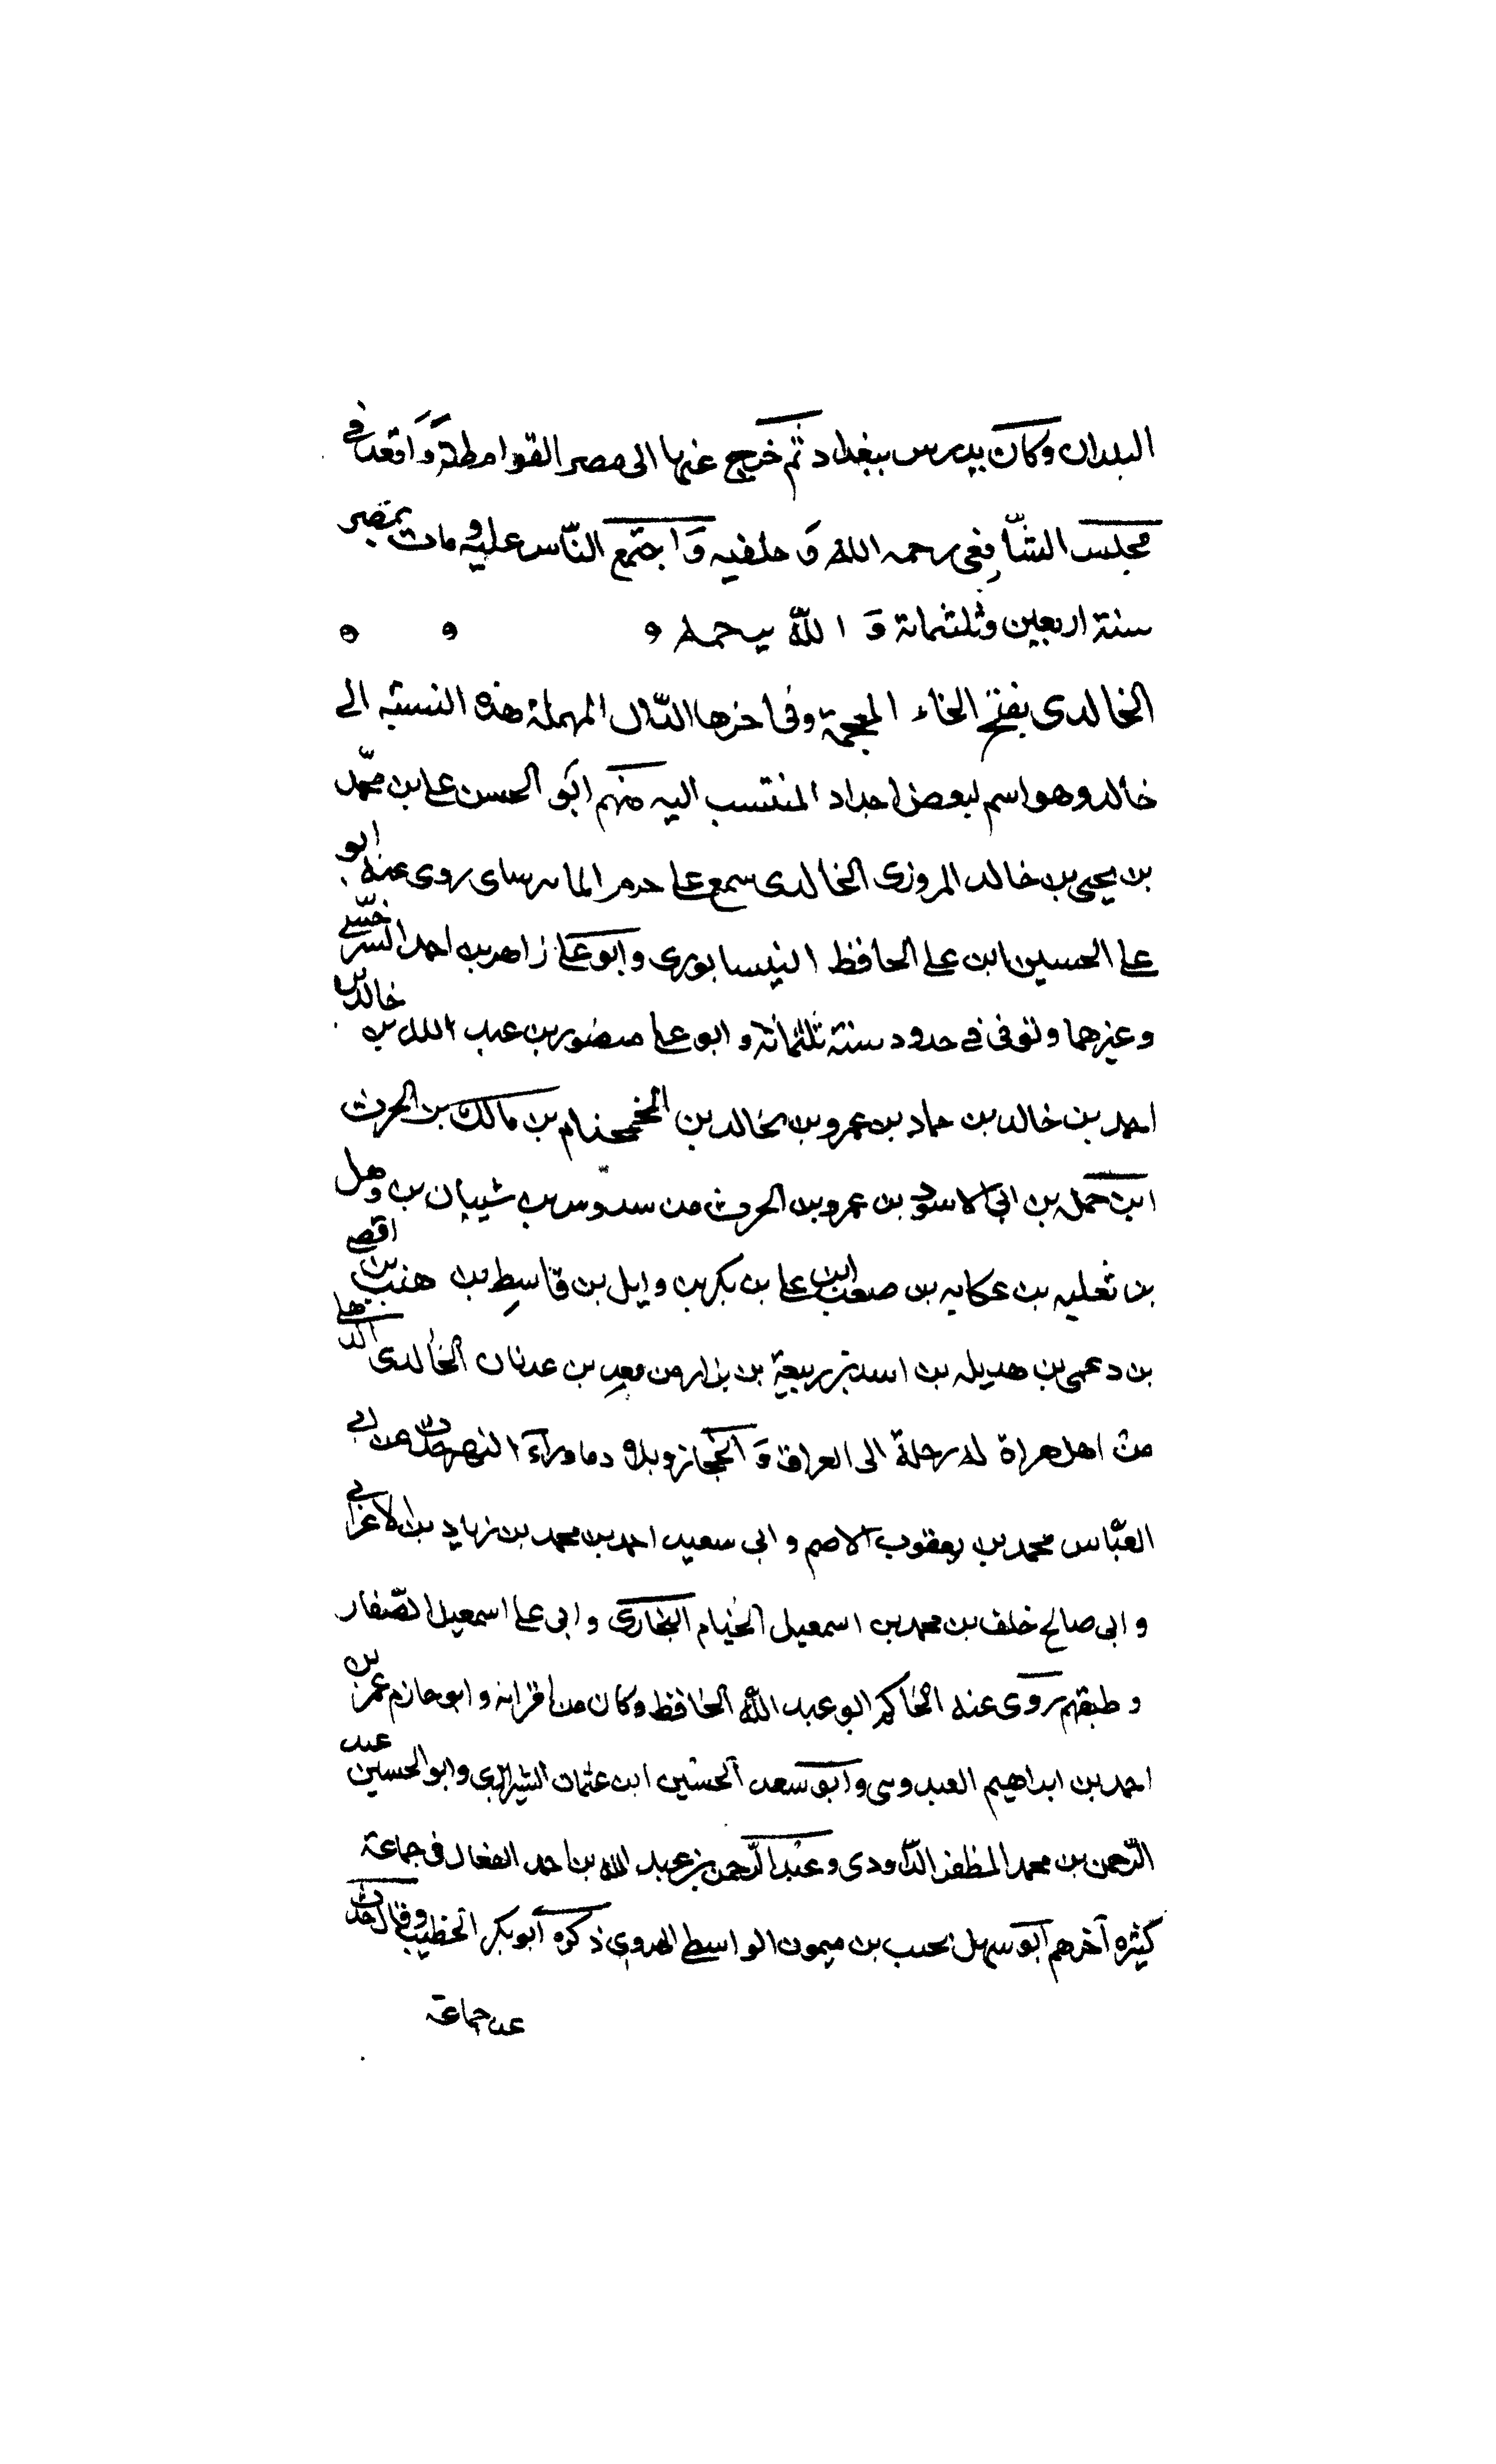 البلدان وكان يدرس ببغداد ثم خرج عنها الى مصر القوامطة وَاقعد في
مجلس الشافِعي رحمه الله وَ حلفيه وَاجتمع النّاس عليه ومات بمصر
سنة اربعين وثلثمائة وَ الله يرحمه
الخالدى بفتح الخاء المعجمة وفى اخرها الدّال المهملة هذه النسبة الى
خالد وهو اسم لبعض اجداد المنتسب اليه منهم ابَو الحسن على بن محّمد
بن يحيى بن خالد المروزى الخالدى سمع على روى عنه ابو
على الحسين ابن على الحافظ النيسابورى وابو على زاهر بن احمد السرخسّى
وغيرهما وتوفى فى حدود سنة ثلثمائة و ابو على منصور بن عبد الله بن خالد بن
احمد بن خالد بن حماد بن عمرو بن مخالد بن بن مالك بن الحرث
ابن حمل بن ابى الاسود بن عمرو بن الحرث من سدوس بن شيبان بن وهل
بن ثعلبه بن عكابه بن صعب ابن على بن بكر بن وايل بن قاسِط بن هنب بن اقصى
بن دعمى بن هديله بن اسد بن ربيعة بن نزار من معد بن عدنان الخالدى الدهلى
من اهل هراة له رحلة الى العراق وَ الحجاز وبلاد ماورآء النهر حدّث عن ابى
العبّاس محمد بن يعقوب الاصم و ابى سعيد احمد بن محمد بن زياد بن الاعرابى
و ابى صالح خلف بن محمد بن اسمعيل الخيام البخارى و ابى على اسمعيل الصّفار
و طبقتهم روى عنه الحاكم ابو عبد الله الحافظ وكان من اقرانه و ابو حازم عمر بن
احمد بن ابراهيم العبدوى وابو سعد الحسين ابن عثمان الشيرازى وابو الحسين عبد
الرّحمن بن محمد المظفر الدّاودى وعبد الرّحمن بن عبد الله بن احمد القفال فى جماعة
كثيره آخرهم ابو سهل بن ميمون الواسطى الهروى ذكره ابو بكر الخطيب وقال حدث
عن جماعة